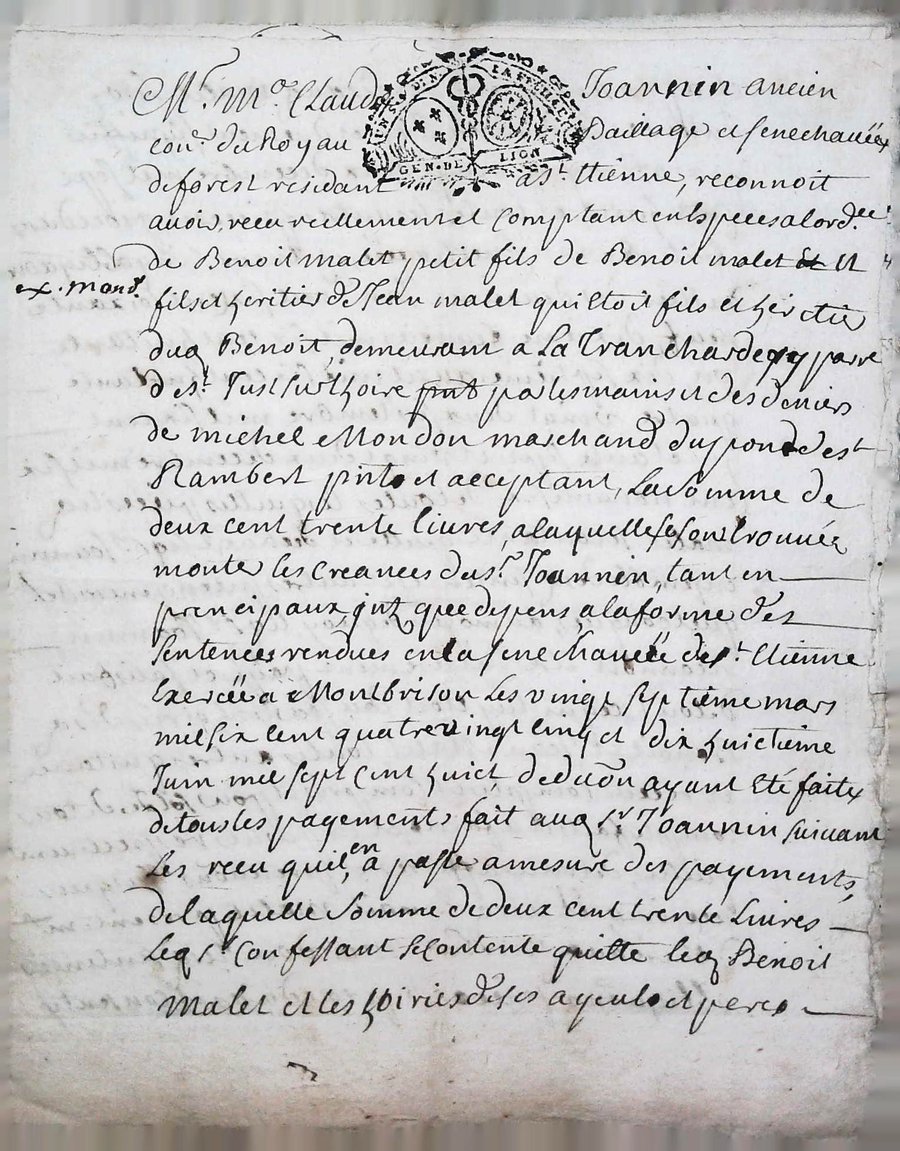 Mr. Mo. Claude Joannin ancien
conr. du Royau Baillage et senechaucée
de forest residant a St. Etienne, reconnoit
GEN. DE LION
avoir receu reellement et comptant en especes a lord.ee
de Benoit malet petit fils de Benoit malet et
ex. mand.
fils et heritier de Jean malet qui etoit fils et heritie
dud Benoit, demeurant a La Tranchardey parre
de st. Just sur Loire pnt par les mains et des deniers
de michel Mondon marchand du pond de st
Rambert pnt et acceptant, La somme de
deux cent trente livres, a laquelle se son trouvée
monter les creances du sr. Joannin, tant en
principaux jntz que depens, a la forme des
sentences rendues en la senechaucée de st. Etienne
Exercée a Montbrison Les vingt septieme mars
mil six cent quatre vingt cinq et dix huictieme
Juin mil sept cent huict, deduõn ayant Eté faite
de tous les payements fait aud sr Joannin suivant
Les receu quil en a passé a mesure des payements,
de laquelle somme de deux cent trente Livres
Led sr confessant se contente quitte led Benoit
Malet et les hoiries de ses ayeulx et peres